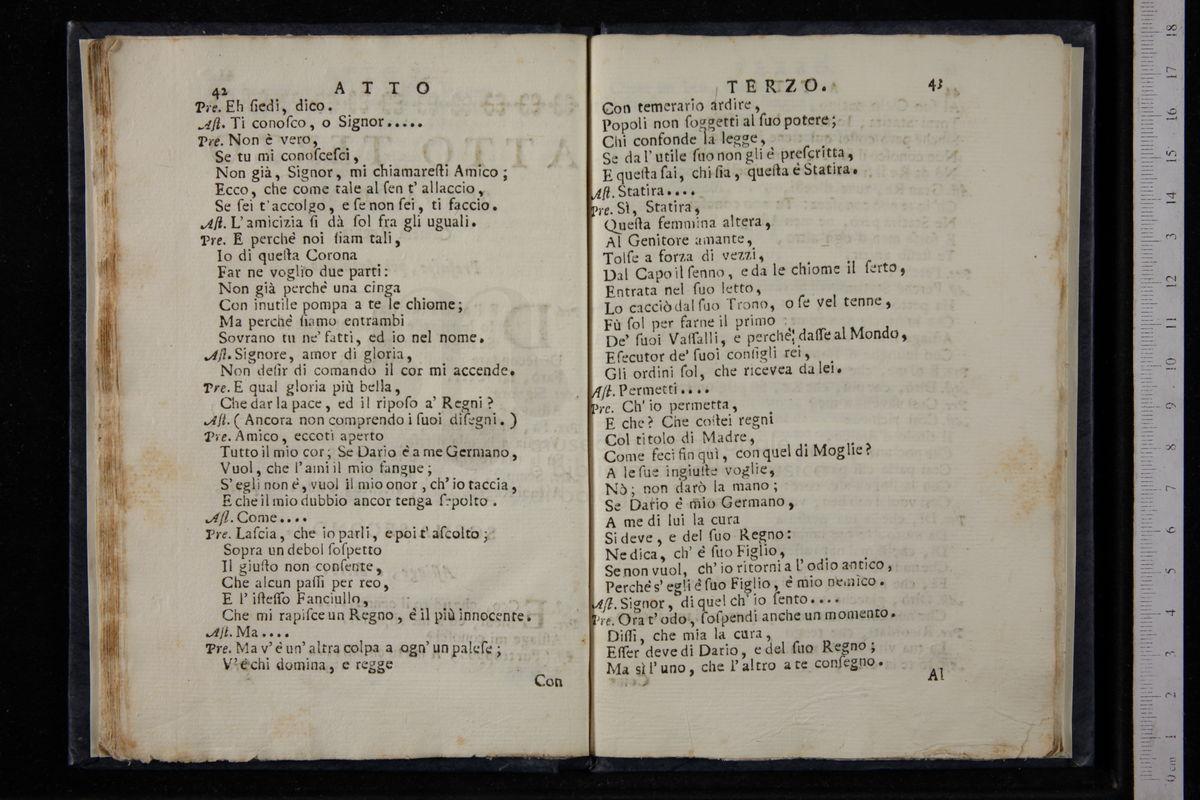 42 ATTO
Pre. Eh ſiedi, dico.
Aſt. Ti conoſco, o Signor.....
Pre. Non è vero,
Se tu mi conoſceſci,
Non già, Signor, mi chiamareſti Amico;
Ecco, che come tale al ſen t' allaccio,
Se ſei t'accolgo, e ſe non ſei, ti faccio.
Aſt. L'amicizia ſi dà ſol fra gli uguali.
Pre. E perchè noi ſiam tali,
Io di queſta Corona
Far ne voglio due parti:
Non già perchè una cinga
Con inutile pompa a te le chiome;
Ma perchè ſiamo entrambi
Sovrano tu ne' fatti, ed io nel nome.
Aſt. Signore, amor di gloria,
Non deſir di comando il cor mi accende.
Pre. E qual gloria più bella,
Che dar la pace, ed il ripoſo a' Regni?
Aſt. (Ancora non comprendo i ſuoi diſegni.)
Pre. Amico, eccoti aperto
Tutto il mio cor; Se Dario è a me Germano,
Vuol, che l'ami il mio ſangue;
S' egli non è, vuol il mio onor, ch' io taccia,
E che il mio dubbio ancor tenga ſepolto.
Aſt. Come....
Pre. Laſcia, che io parli, e poi t' aſcolto;
Sopra un debol ſoſpetto
Il giuſto non conſente,
Che alcun paſſi per reo,
E l' iſteſſo Fanciullo,
Che mi rapiſce un Regno, è il più innocente.
Aſt. Ma....
Pre. Ma v'è un' altra colpa a ogn' un paleſe;
V'è chi domina, e regge
Con
TERZO. 43
Con temerario ardire,
Popoli non ſoggetti al ſuo potere;
Chi confonde la legge,
Se da l' utile ſuo non gli è preſcritta,
E queſta ſai, chi ſia, queſta è Statira.
Aſt. Statira....
Pre. Sì, Statira,
Queſta femmina altera,
Al Genitore amante,
Tolſe a forza di vezzi,
Dal Capo il ſenno, e da le chiome il ſerto,
Entrata nel ſuo letto,
Lo cacciò dal ſuo Trono, o ſe vel tenne,
Fù ſol per farne il primo
De' ſuoi Vaſſalli, e perchè daſſe al Mondo,
Eſecutor de' ſuoi conſigli rei,
Gli ordini ſol, che ricevea da lei.
Aſt. Permetti....
Pre. Ch' io permetta,
E che? Che coſtei regni
Col titolo di Madre,
Come feci fin quì, con quel di Moglie?
A le ſue ingiuſte voglie,
Nò; non darò la mano;
Se Dario è mio Germano,
A me di lui la cura
Si deve, e del ſuo Regno:
Ne dica, ch' è ſuo Figlio,
Se non vuol, ch' io ritorni a l' odio antico,
Perchè s' egli è ſuo Figlio, è mio nemico.
Aſt. Signor, di quel ch' io ſento....
Pre. Ora t' odo, ſoſpendi anche un momento.
Diſſi, che mia la cura,
Eſſer deve di Dario, e del ſuo Regno;
Ma sì l' uno, che l' altro a te conſegno.
Al
0 cm 1 2 3 4 5 6 7 8 9 10 11 12 13 14 15 16 17 18